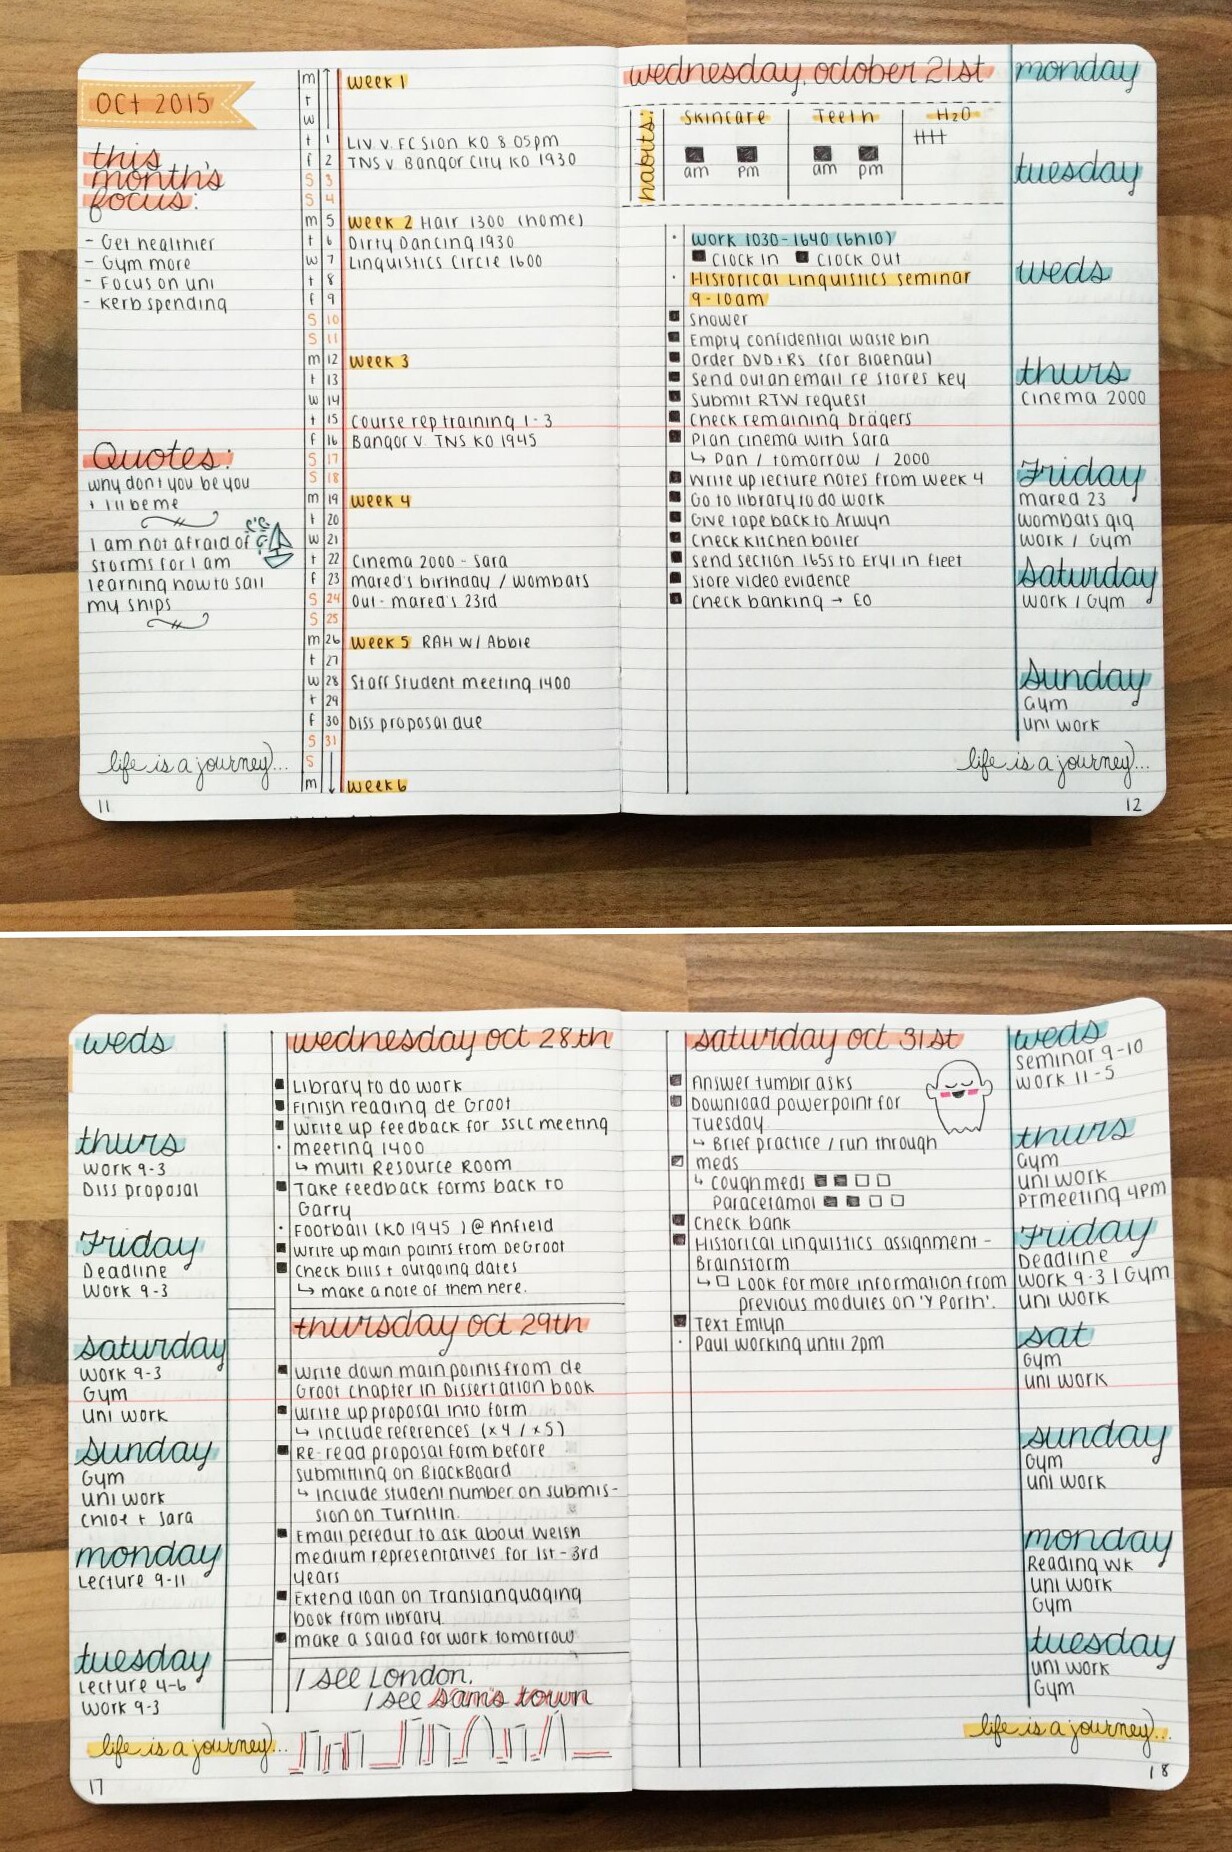 OCT 2015
this
month's
focus:
- Get healthier
- Gym more
- Focus on uni
- Kerb spending
Quotes:
why don't you be you
+ I'll be me
I am not afraid of
storms for I am
learning how to sail
my ships
life is a journey...
11
m Week 1
t
w
t 1 Liv v. FC Sion KO 8.05pm
f 2 TNS v Bangor City KO 1930
S 3
S 4
m 5 Week 2 Hair 1300 (home)
t 6 Dirty Dancing 1930
w 7 Linguistics Circle 1600
t 8
f 9
S 10
S 11
m 12 Week 3
t 13
w 14
t 15 Course rep training 1-3
f 16 Bangor v. TNS KO 1945
S 17
S 18
m 19 Week 4
t 20
w 21
t 22 Cinema 2000 - Sara
f 23 mared's birthday / Wombats
S 24 Out - mared's 23rd
S 25
m 26 Week 5 RAH w/ Abbie
t 27
w 28 Staff Student meeting 1400
t 29
f 30 Diss proposal due
S 31
S
m Week 6
wednesday, october 21st
habits:
Skincare Teeth H2O
am pm am pm
· Work 1030-1640 (6h10)
Clock in Clock out
· Historical Linguistics seminar
9-10am
Shower
Empty confidential waste bin
Order DVD+Rs (for Blaenau)
Send out an email re stores key
Submit RTW request
Check remaining Drägers
Plan cinema with Sara
↳ Pan / tomorrow / 2000
Write up lecture notes from Week 4
Go to library to do work
Give tape back to Arwyn
Check kitchen boiler
Send section 165s to Eryl in fleet
Store video evidence
Check banking → EO
monday
tuesday
weds
thurs
Cinema 2000
Friday
mared 23
Wombats gig
Work / Gym
Saturday
Work / Gym
Sunday
Gym
Uni work
life is a journey...
12
weds
thurs
Work 9-3
Diss proposal
Friday
Deadline
Work 9-3
saturday
Work 9-3
Gym
Uni work
Sunday
Gym
Uni work
Chloe + Sara
monday
Lecture 9-11
tuesday
Lecture 4-6
Work 9-3
life is a journey...
17
wednesday oct 28th
Library to do work
Finish reading de Groot
Write up feedback for SSLC meeting
· meeting 1400
↳ multi Resource Room
Take feedback forms back to
Garry
· Football (KO 1945) @ Anfield
Write up main points from DeGroot
Check bills + outgoing dates
↳ make a note of them here.
thursday oct 29th
Write down main points from de
Groot chapter in Dissertation book
Write up proposal into form
↳ include references (x4 / x5)
Re-read proposal form before
submitting on BlackBoard
↳ include student number on submis-
sion on Turnitin.
Email peredur to ask about Welsh
medium representatives for 1st - 3rd
years
Extend loan on Translanguaging
book from library.
make a salad for work tomorrow
I see London,
I see Sam's town
saturday oct 31st
Answer tumblr asks
Download powerpoint for
Tuesday.
↳ Brief practice / run through
meds
↳ cough meds
Paracetamol
Check bank
Historical linguistics assignment -
Brainstorm
↳ Look for more information from
previous modules on 'Y Porth'.
Text Emlyn
· Paul working until 2pm
weds
Seminar 9-10
Work 11-5
thurs
Gym
Uni work
PT meeting 4pm
Friday
Deadline
Work 9-3 | Gym
Uni work
sat
Gym
Uni work
sunday
Gym
Uni work
monday
Reading wk
Uni work
Gym
tuesday
Uni work
Gym
life is a journey...
18